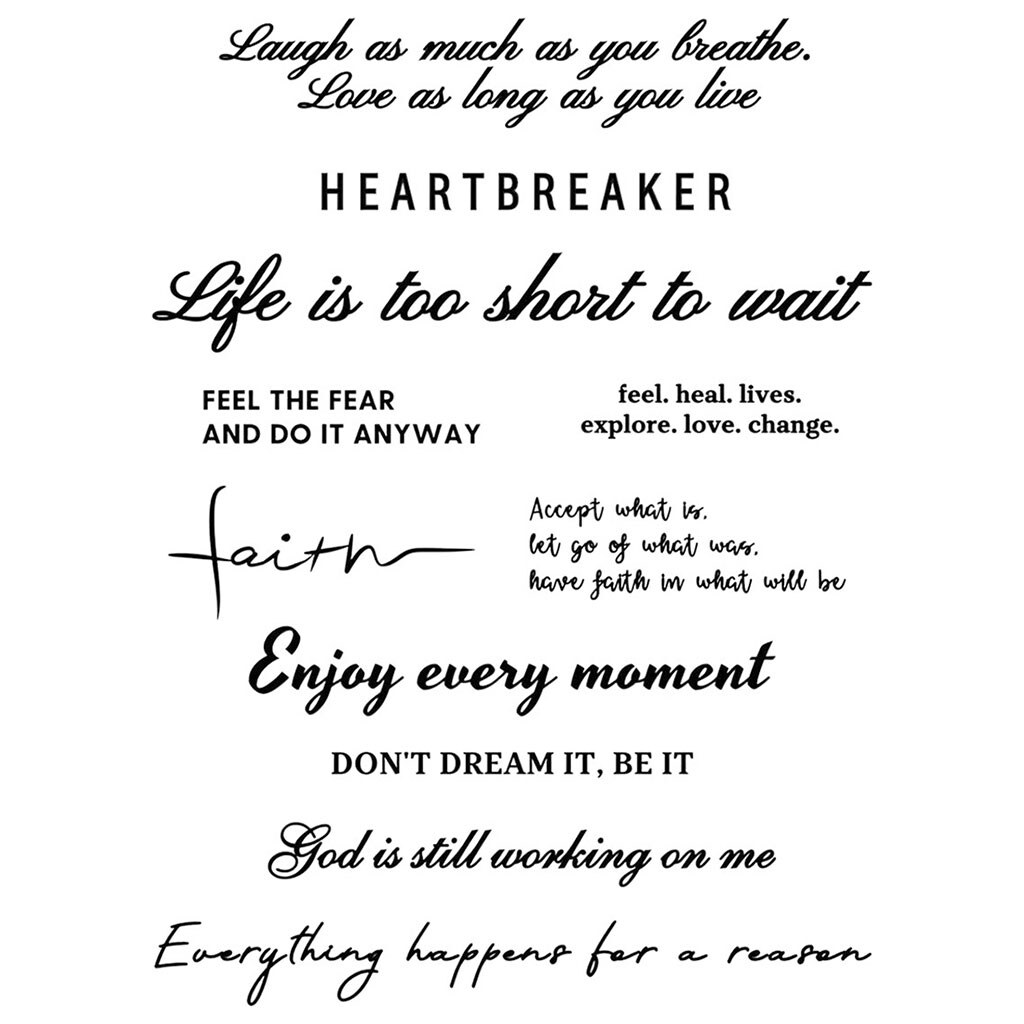 Laugh as much as you breathe.
Love as long as you live
HEARTBREAKER
Life is too short to wait
FEEL THE FEAR
AND DO IT ANYWAY
feel. heal. lives.
explore. love. change.
faith
Accept what is,
let go of what was,
have faith in what will be
Enjoy every moment
DON'T DREAM IT, BE IT
God is still working on me
Everything happens for a reason